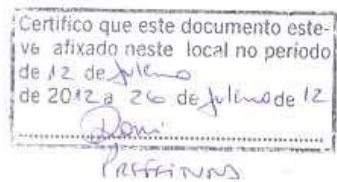 Certifico que este documento este-
ve afixado neste local no período
de 12 de julho
de 2012 a 26 de julho de 12